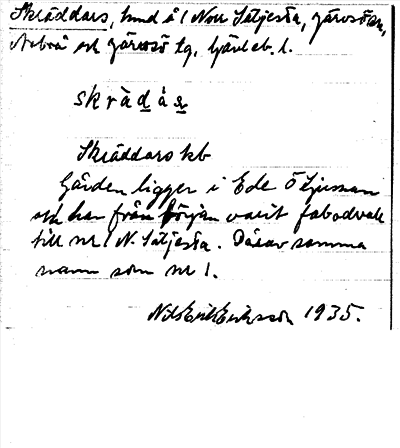 Skräddars, hmd å 1 Norr Sätjesta, Järvsöån,
Arbrå och Järvsö tg, Gävleb. l.
skrädas
Skräddars kb
Gården ligger i Ede Ö Ljusnan
och har från början varit fäbodvall
till nr 1 N. Sätjesta. Därav samma
namn som nr 1.
Nils Erik Eriksson 1935.